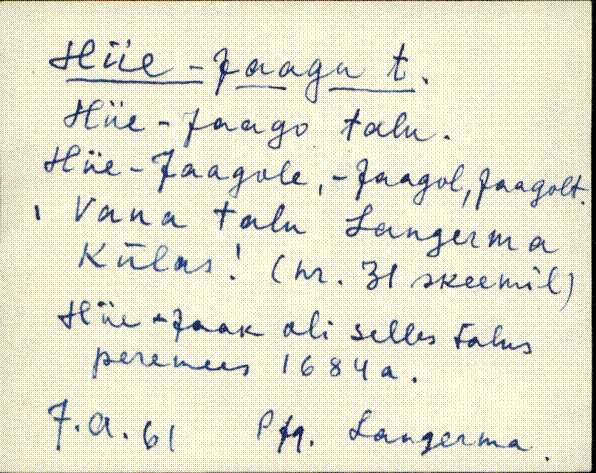 Hüe-Jaagu t.
Hüe-Jaago talu.
Hüe-Jaagole, -Jaagol, Jaagolt.
Vana talu Langerma
Külas! (nr. 31 skeemil)
Hüe-Jaak oli selles talus
peremees 1684 a.
7.a.61 Pjg. Langerma.